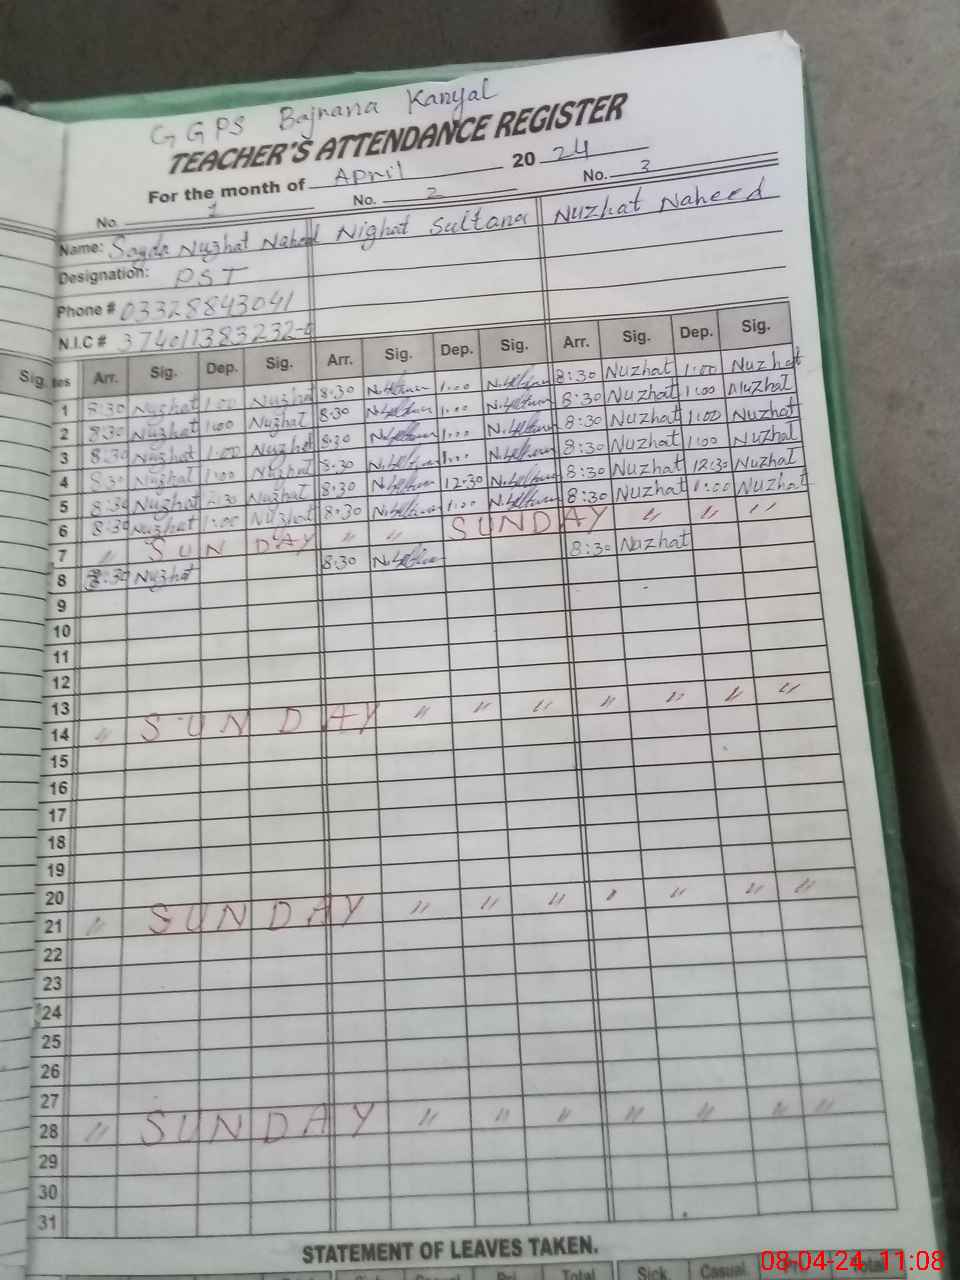 GGPS Bajnana Kanyal
TEACHER'S ATTENDANCE REGISTER
For the month of April 2024
No. 1 No. 2 No. 3
Name: Sayda Nuzhat Naheed Nighat Sultana Nuzhat Naheed
Designation: PST
Phone # 03328843041
N.I.C # 374011383232-
Sig. tes Arr. Sig. Dep. Sig. Arr. Sig. Dep. Sig. Arr. Sig. Dep. Sig.
1 8:30 Nuzhat 1:00 Nuzhat 8:30 1:00 8:30 Nuzhat 1:00 Nuzhat
2 8:30 Nuzhat 1:00 Nuzhat 8:30 1:00 8:30 Nuzhat 1:00 Nuzhat
3 8:30 Nuzhat 1:00 Nuzhat 8:30 1:00 8:30 Nuzhat 1:00 Nuzhat
4 8:30 Nuzhat 1:00 Nuzhat 8:30 1:00 8:30 Nuzhat 1:00 Nuzhat
5 8:30 Nuzhat 12:30 Nuzhat 8:30 12:30 8:30 Nuzhat 12:30 Nuzhat
6 8:30 Nuzhat 1:00 Nuzhat 8:30 1:00 8:30 Nuzhat 1:00 Nuzhat
7 " SUNDAY " " SUNDAY " " "
8 8:30 Nuzhat 8:30 8:30 Nuzhat
9
10
11
12
13
14 " SUNDAY " " " " " " "
15
16
17
18
19
20
21 " SUNDAY " " " " " " "
22
23
24
25
26
27
28 " SUNDAY " " " " " " "
29
30
31
STATEMENT OF LEAVES TAKEN.
Total Sick Casual Total
08-04-24 11:08